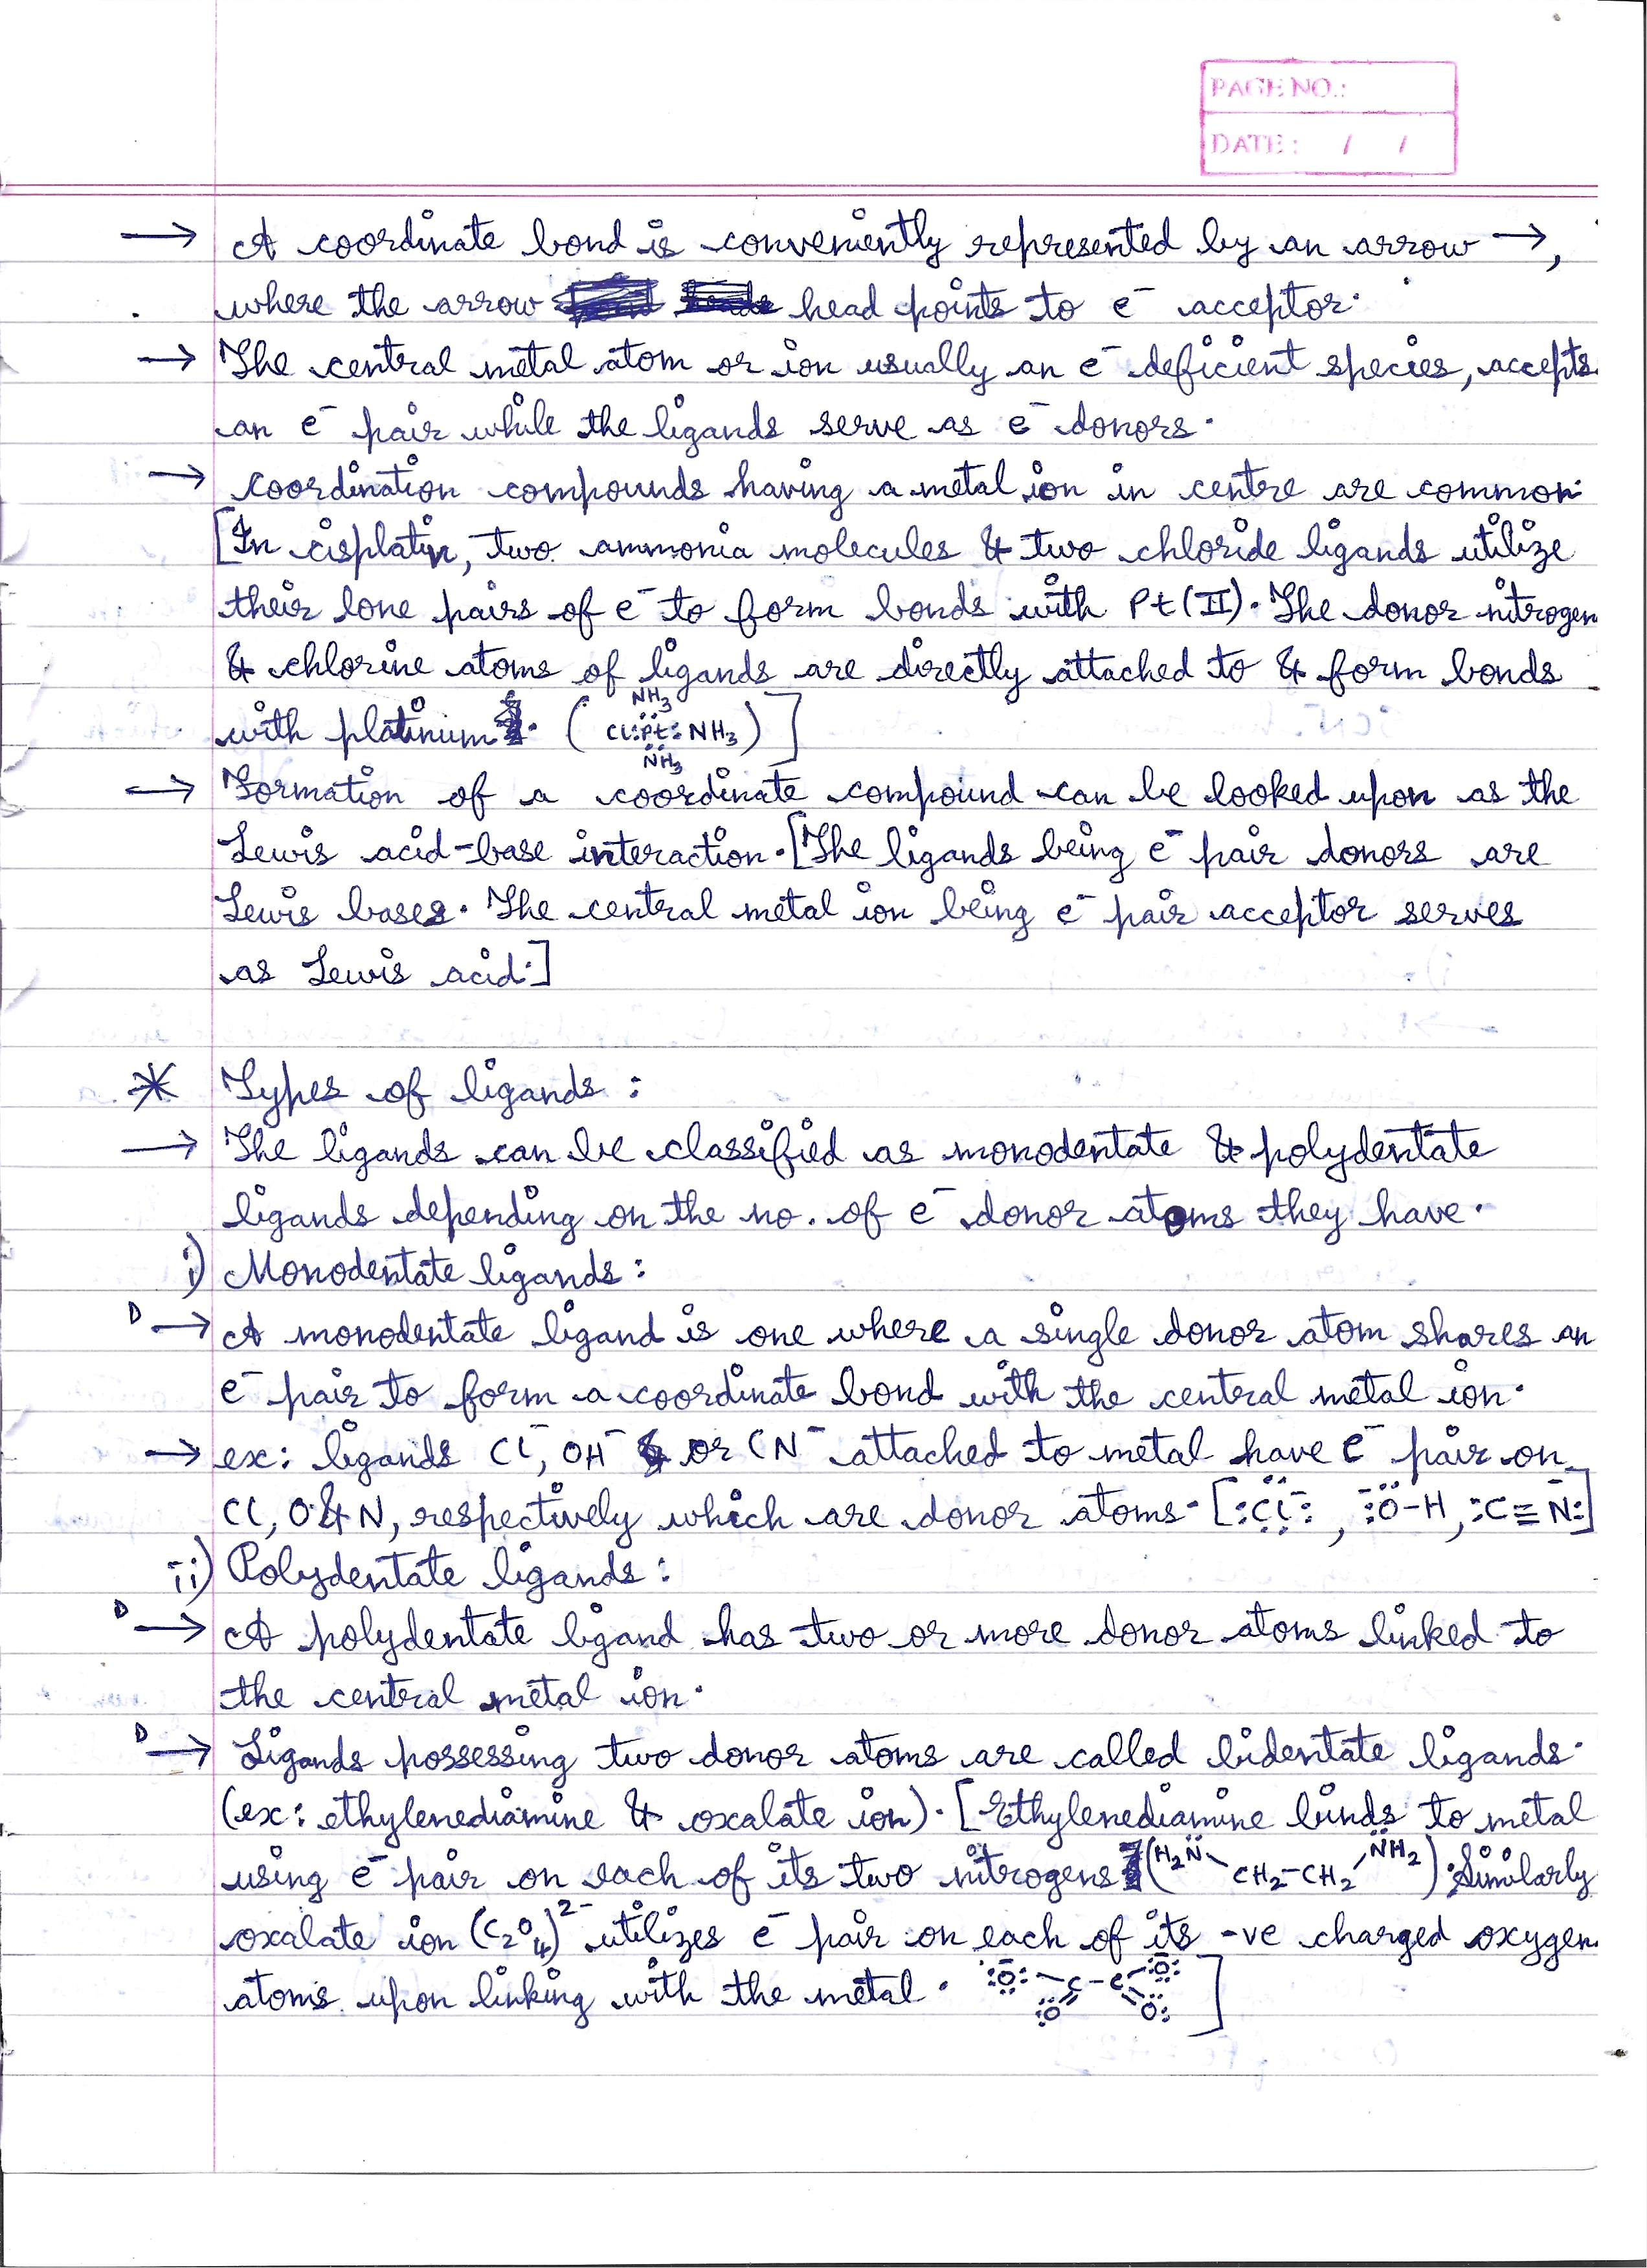 PAGE NO.:
DATE: / /
→ A coordinate bond is conveniently represented by an arrow →,
where the arrow head points to e⁻ acceptor.
→ The central metal atom or ion usually an e⁻ deficient species, accepts
an e⁻ pair while the ligands serve as e⁻ donors.
→ Coordination compounds having a metal ion in centre are common.
[In cisplatin, two ammonia molecules & two chloride ligands utilize
their lone pairs of e⁻ to form bonds with Pt(II). The donor nitrogen
& chlorine atoms of ligands are directly attached to & form bonds
NH₃
with platinum. (Cl:Pt:NH₃)]
NH₃
→ Formation of a coordinate compound can be looked upon as the
Lewis acid-base interaction. [The ligands being e⁻ pair donors are
Lewis bases. The central metal ion being e⁻ pair acceptor serves
as Lewis acid.]
* Types of ligands :
→ The ligands can be classified as monodentate & polydentate
ligands depending on the no. of e⁻ donor atoms they have.
i) Monodentate ligands :
D → A monodentate ligand is one where a single donor atom shares an
e⁻ pair to form a coordinate bond with the central metal ion.
→ ex: ligands Cl⁻, OH⁻ or CN⁻ attached to metal have e⁻ pair on
Cl, O & N, respectively which are donor atoms. [:Cl:⁻, ⁻:O-H, :C≡N:⁻]
ii) Polydentate ligands :
D → A polydentate ligand has two or more donor atoms linked to
the central metal ion.
D → Ligands possessing two donor atoms are called bidentate ligands.
(ex: ethylenediamine & oxalate ion). [Ethylenediamine binds to metal
using e⁻ pair on each of its two nitrogens (H₂N-CH₂-CH₂-NH₂). Similarly
oxalate ion (C₂O₄)²⁻ utilizes e⁻ pair on each of its -ve charged oxygen
atoms upon linking with the metal. :O: C-C :O: :O: O: ]